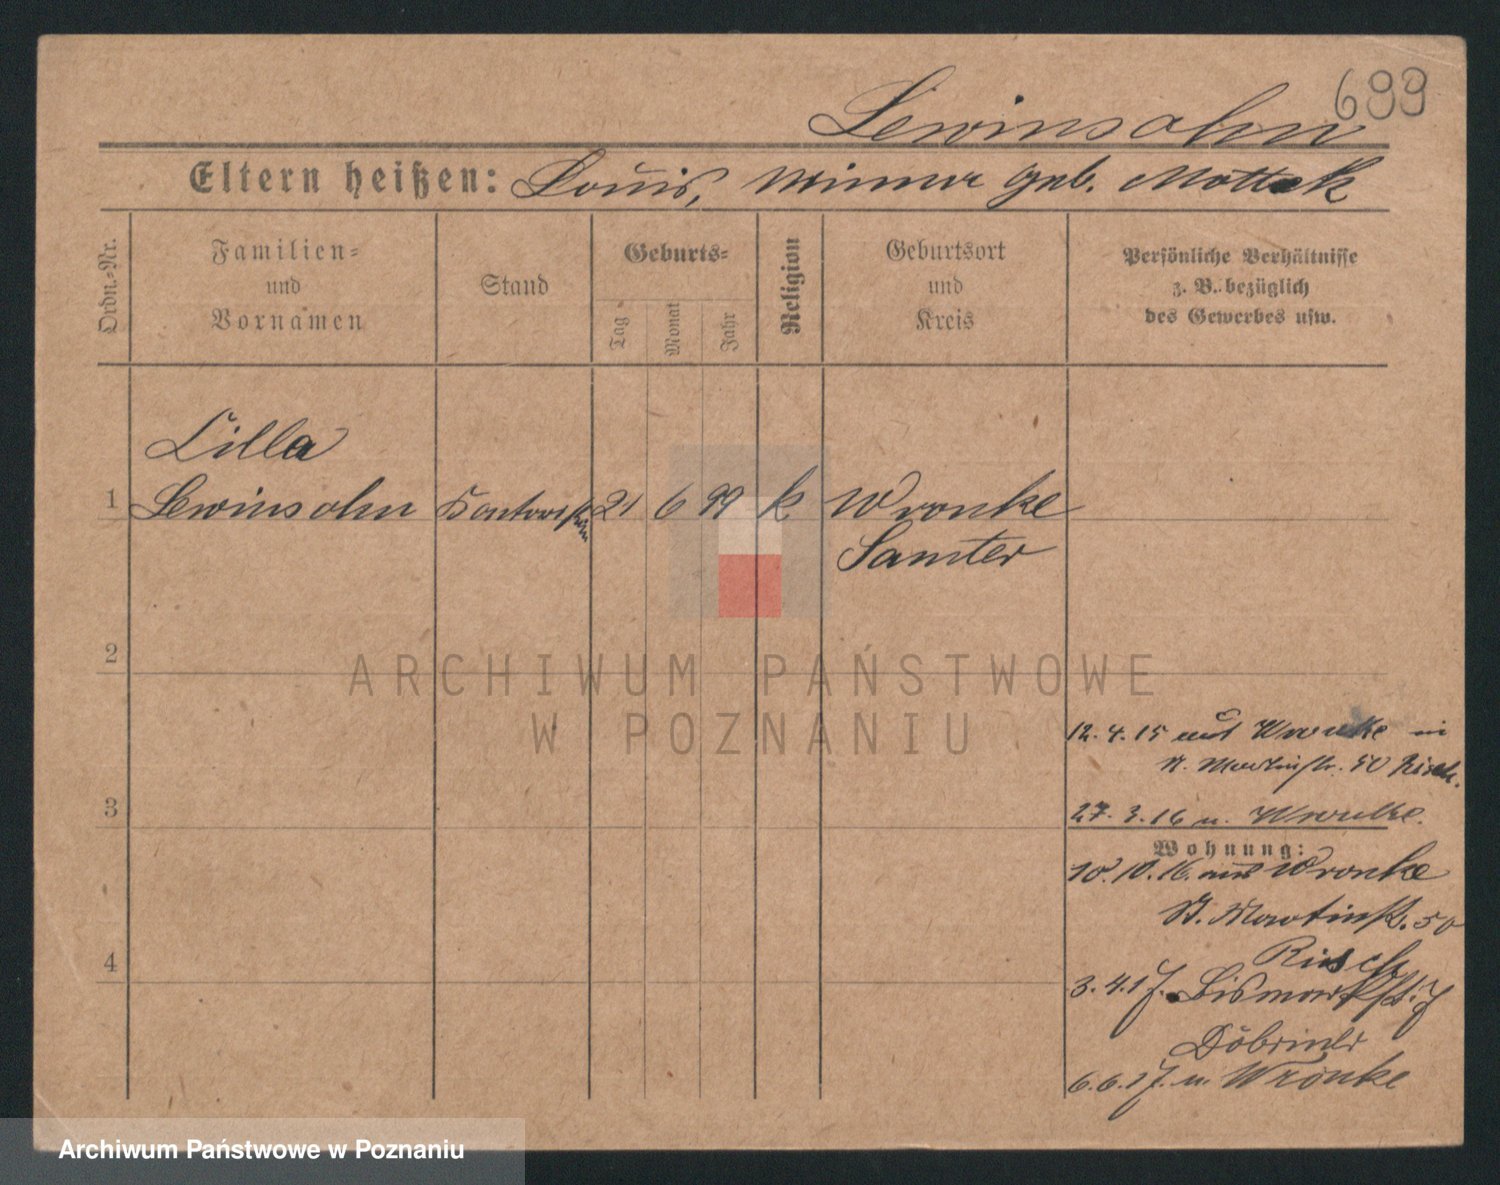 699
Lewinsohn
Eltern heißen: Louis, Minna geb. Mottek
Ordn.-Nr.
Familien-
und
Vornamen
Stand
Geburts-
Tag
Monat
Jahr
Religion
Geburtsort
und
Kreis
Persönliche Verhältnisse
z. B. bezüglich
des Gewerbes usw.
Lilla
1 Lewinsohn Kontoristin 21 6 99 k Wronke
Samter
2
ARCHIWUM PAŃSTWOWE
W POZNANIU
12. 4. 15 aus Wronke in
St. Martinstr. 50 Risch.
3
27. 3. 16 n. Wronke.
Wohnung:
10. 10. 16. aus Wronke
St. Martinstr. 50
Risch
4
3. 4. 17. Bismarkstr. 7
Döbriner
6. 6. 17. n. Wronke
Archiwum Państwowe w Poznaniu